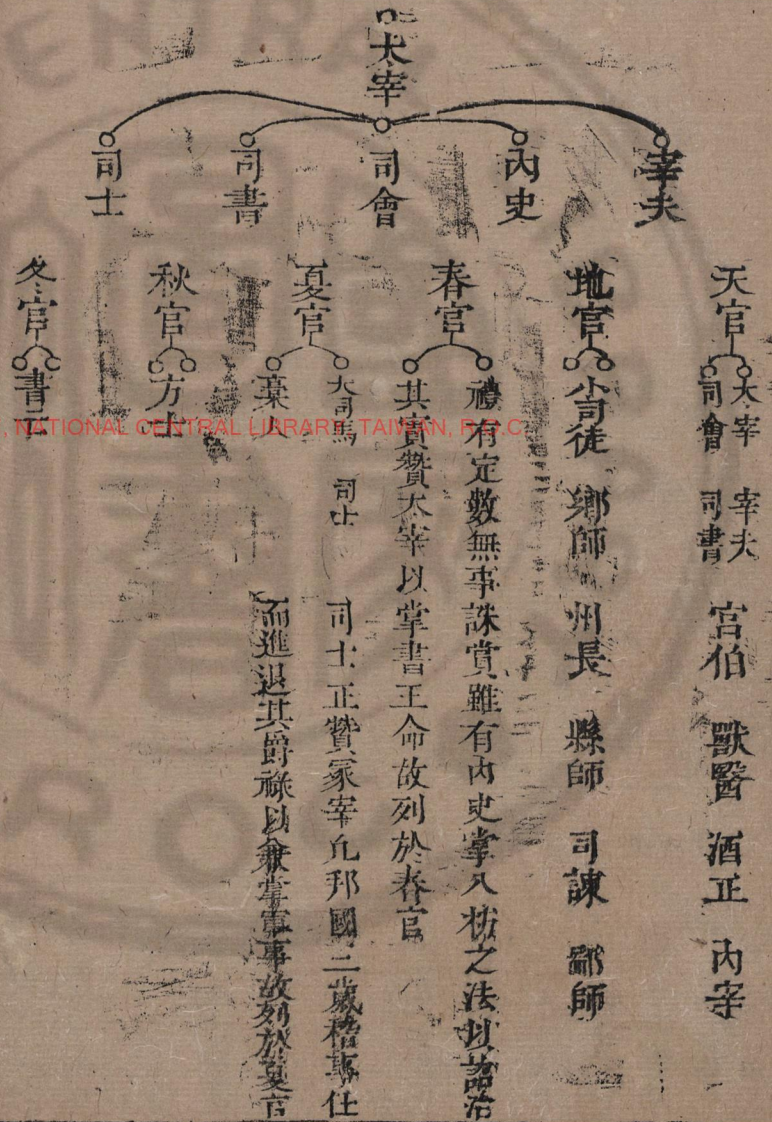 太宰
宰夫
內史
司會
司書
司士
天官
太宰 宰夫 宮伯 獸醫 酒正 內宰
司會 司書
地官
小司徒 鄉師 州長 縣師 司諫 鄙師
春官
禮有定數無事誅賞雖有內史掌八柄之法以詔治
其實贊太宰以掌書王命故列於春官
夏官
大司馬 司士 司士正贊冡宰凡邦國三歲稽事仕
槀人 而進退其爵祿以兼掌軍事故列於夏官
秋官
方士
冬官
書亡
NATIONAL CENTRAL LIBRARY, TAIWAN, R.O.C.